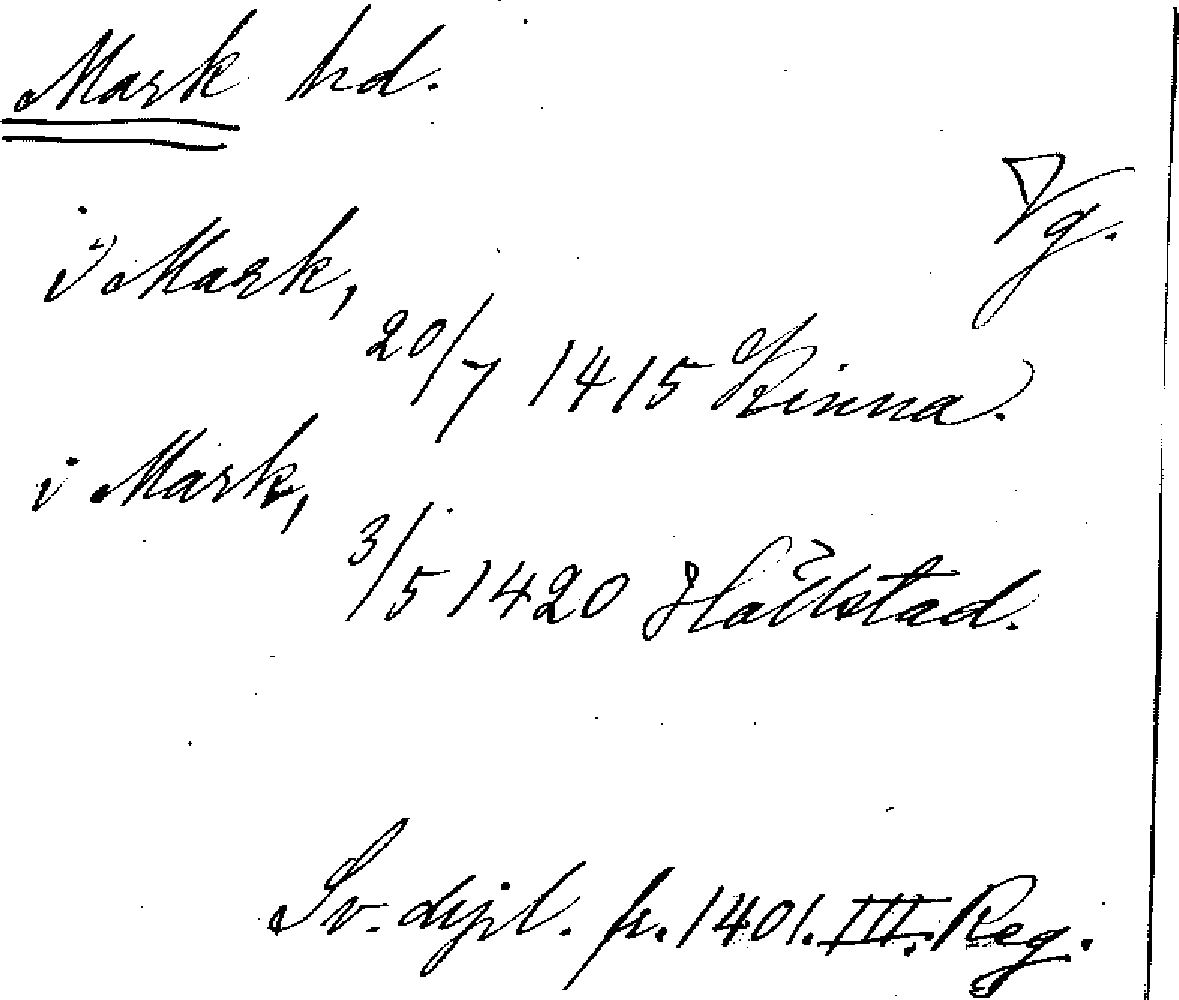 Mark hd.
Vg.
i Mark,
20/7 1415 Kinna.
i Mark,
3/5 1420 Hällstad.
Sv. dipl. fr. 1401. III. Reg.